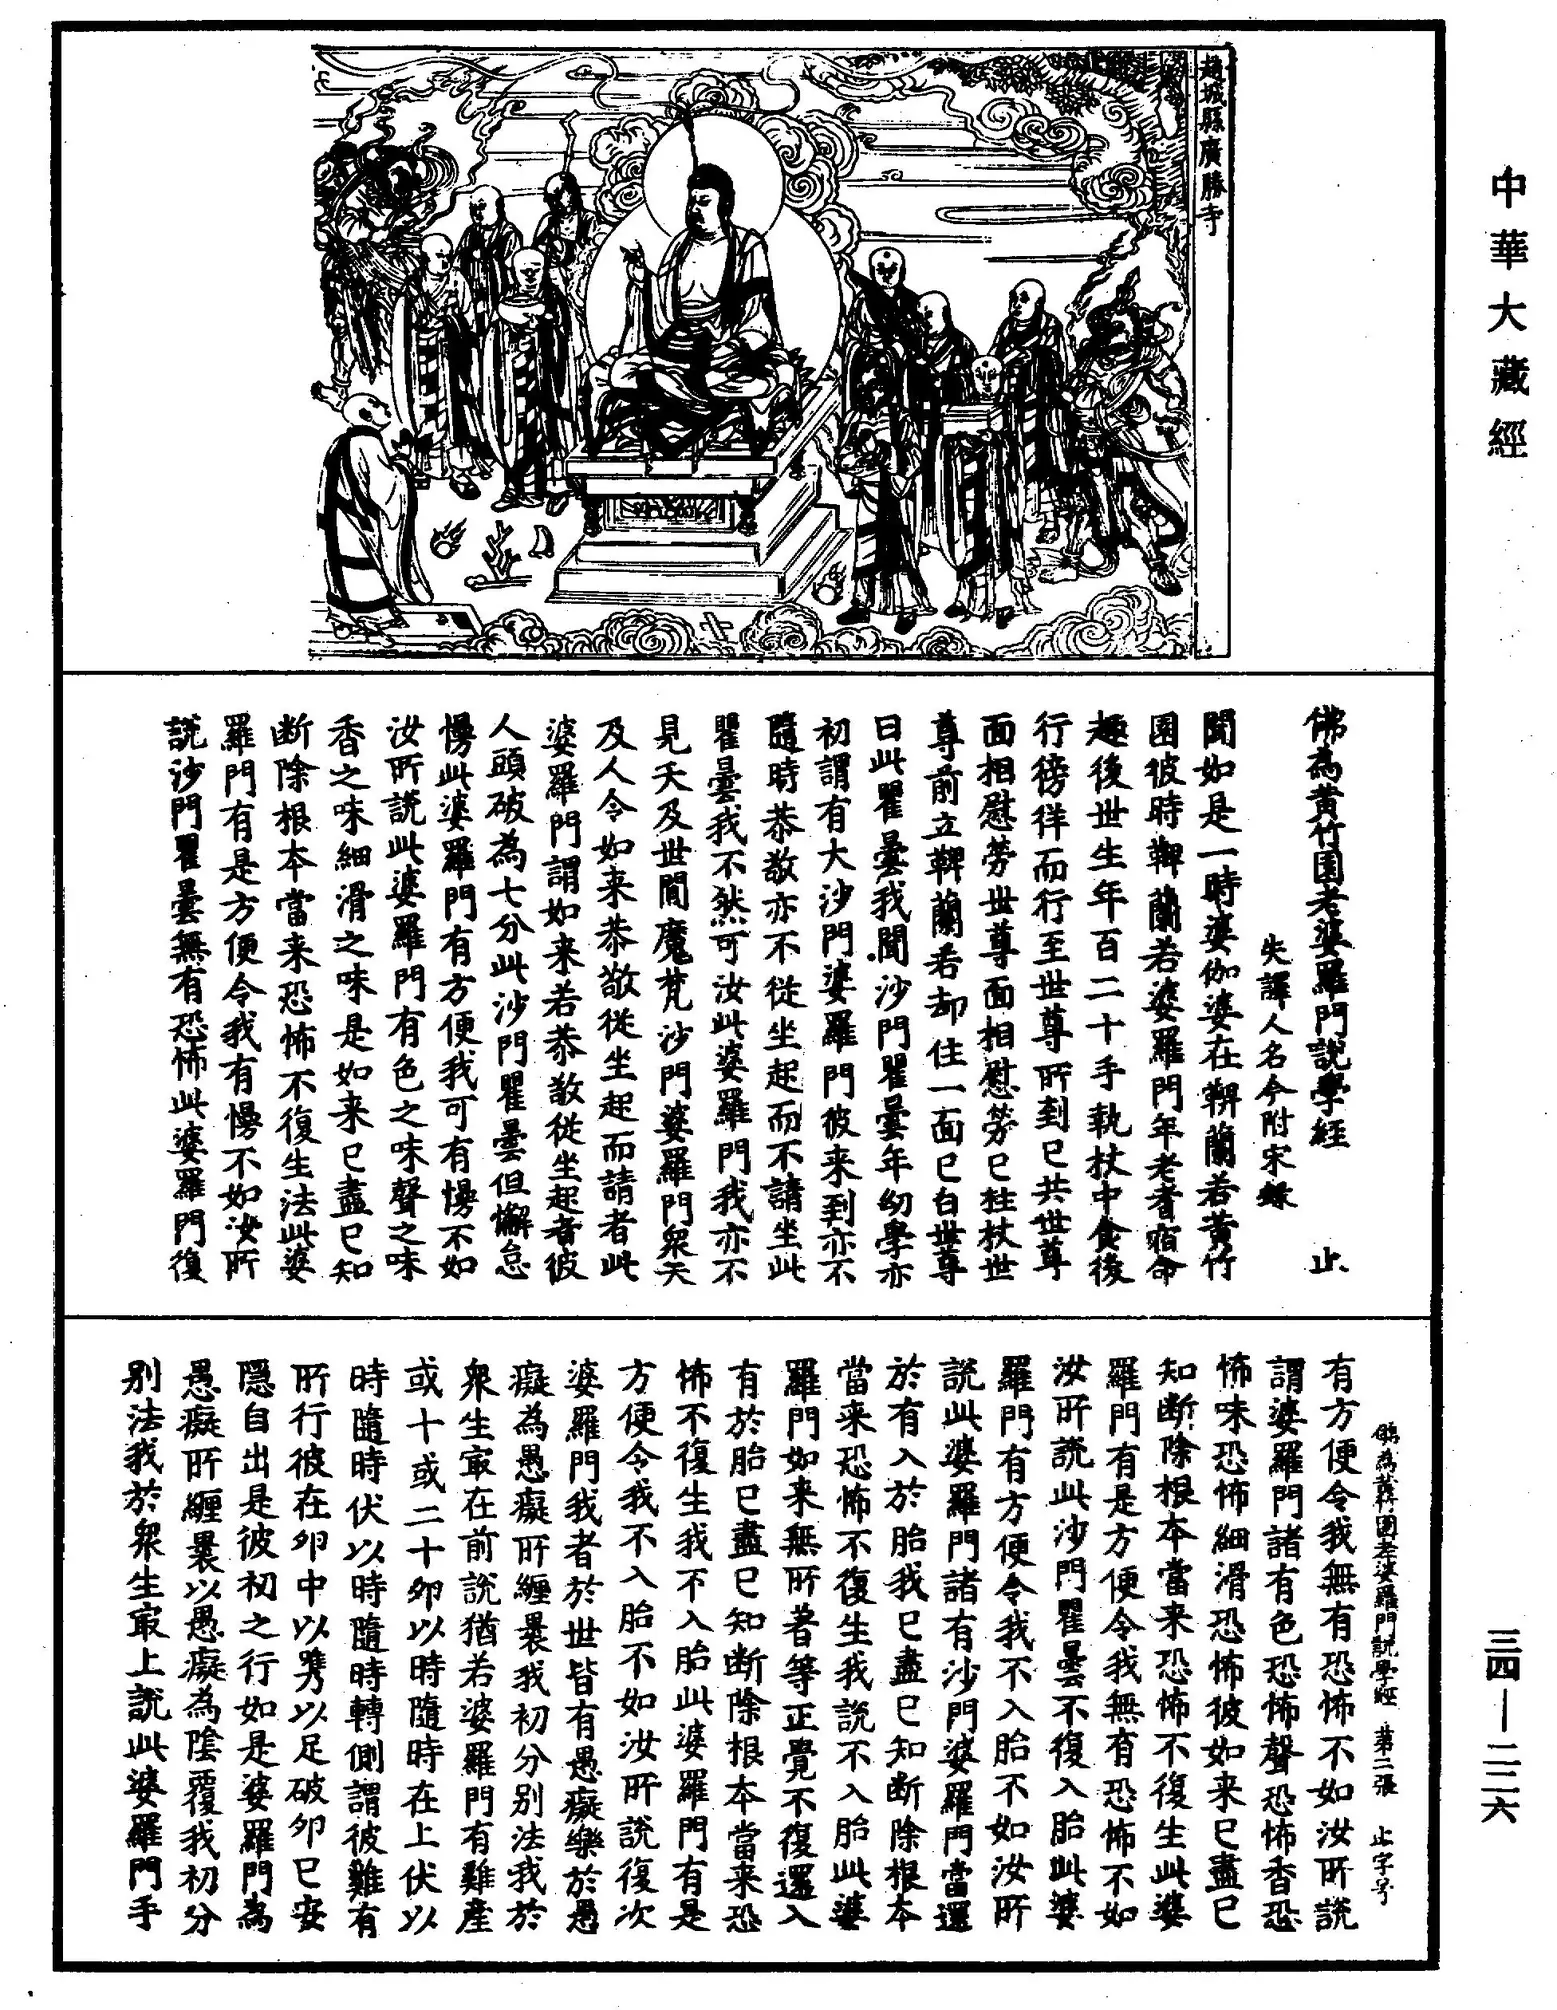 中華大藏經
三四—二二六
趙城縣廣勝寺
佛為黃竹園老婆羅門說學經 止
失譯人名今附宋錄
聞如是一時婆伽婆在鞞蘭若黃竹
園彼時鞞蘭若婆羅門年老耆宿命
趣後世生年百二十手執杖中食後
行徬徉而行至世尊所到已共世尊
面相慰勞世尊面相慰勞已拄杖世
尊前立鞞蘭若却住一面已白世尊
曰此瞿曇我聞沙門瞿曇年幼學亦
初謂有大沙門婆羅門彼来到亦不
隨時恭敬亦不從坐起而不請坐此
瞿曇我不然可汝此婆羅門我亦不
見天及世間魔梵沙門婆羅門眾天
及人令如来恭敬從坐起而請者此
婆羅門謂如来若恭敬從坐起者彼
人頭破為七分此沙門瞿曇但懈怠
慢此婆羅門有方便我可有慢不如
汝所說此婆羅門有色之味聲之味
香之味細滑之味是如来已盡已知
断除根本當来恐怖不復生法此婆
羅門有是方便令我有慢不如汝所
說沙門瞿曇無有恐怖此婆羅門復
佛為黃竹園老婆羅門說學經 苐二張 止字号
有方便令我無有恐怖不如汝所說
謂婆羅門諸有色恐怖聲恐怖香恐
怖味恐怖細滑恐怖彼如来已盡已
知断除根本當来恐怖不復生此婆
羅門有是方便令我無有恐怖不如
汝所說此沙門瞿曇不復入胎此婆
羅門有方便令我不入胎不如汝所
說此婆羅門諸有沙門婆羅門當還
於有入於胎我已盡已知断除根本
當来恐怖不復生我說不入胎此婆
羅門如来無所著等正覺不復還入
有於胎已盡已知断除根本當来恐
怖不復生我不入胎此婆羅門有是
方便令我不入胎不如汝所說復次
婆羅門我者於世皆有愚癡樂於愚
癡為愚癡所纏裹我初分別法我於
眾生冣在前說猶若婆羅門有雞產
或十或二十卵以時隨時在上伏以
時隨時伏以時隨時轉側謂彼雞有
所行彼在卵中以㩦以足破卵已安
隱自出是彼初之行如是婆羅門為
愚癡所纏裹以愚癡為陰覆我初分
別法我於眾生冣上說此婆羅門手